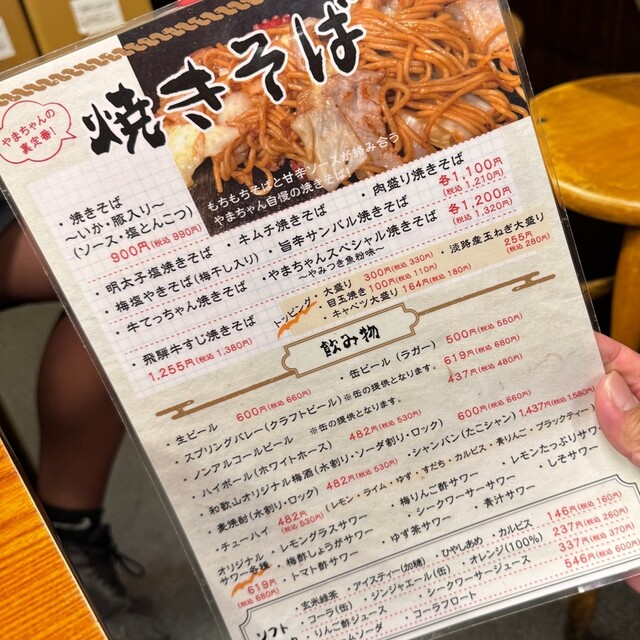 焼きそば
やまちゃんの
裏定番!
もちもちそばと甘辛ソースが絡み合う
やまちゃん自慢の焼きそば!
・焼きそば
〜いか・豚入り〜
(ソース・塩とんこつ)
900円(税込 990円)
・明太子塩焼きそば
・梅塩やきそば(梅干し入り)
・牛てっちゃん焼きそば
・飛騨牛すじ焼きそば
1,255円(税込 1,380円)
・キムチ焼きそば
・肉盛り焼きそば
各1,100円
(税込 1,210円)
・旨辛サンバル焼きそば
・やまちゃんスペシャル焼きそば
〜やみつき魚粉味〜
各1,200円
(税込 1,320円)
トッピング
・大盛り 300円(税込 330円)
・目玉焼き 100円(税込 110円)
・キャベツ大盛り 164円(税込 180円)
・淡路産玉ねぎ大盛り
255円
(税込 280円)
飲み物
・生ビール 600円(税込 660円)
・缶ビール(ラガー) 500円(税込 550円)
・スプリングバレー(クラフトビール)※缶の提供となります。 619円(税込 680円)
・ノンアルコールビール ※缶の提供となります。 437円(税込 480円)
・ハイボール(ホワイトホース) 482円(税込 530円)
・和歌山オリジナル梅酒(水割り・ソーダ割り・ロック) 600円(税込 660円)
・麦焼酎(水割り・ロック) 482円(税込 530円)
・シャンパン(たこシャン) 1,437円(税込 1,580円)
・チューハイ 482円
(税込 530円)
(レモン・ライム・ゆず・すだち・カルピス・青りんご・ブラックティー)
オリジナル
サワー各種
619円
(税込 680円)
・レモングラスサワー
・梅りんご酢サワー
・レモンたっぷりサワー
・梅酢しょうがサワー
・シークワーサーサワー
・しそサワー
・トマト酢サワー
・ゆず茶サワー
・青汁サワー
ソフト
・玄米緑茶
・アイスティー(加糖)
・ひやしあめ
・カルピス 146円(税込 160円)
・コーラ(缶)
・ジンジャエール(缶)
・オレンジ(100%) 237円(税込 260円)
・りんご酢ジュース
・シークワーサージュース 337円(税込 370円)
・コーラフロート 546円(税込 600円)